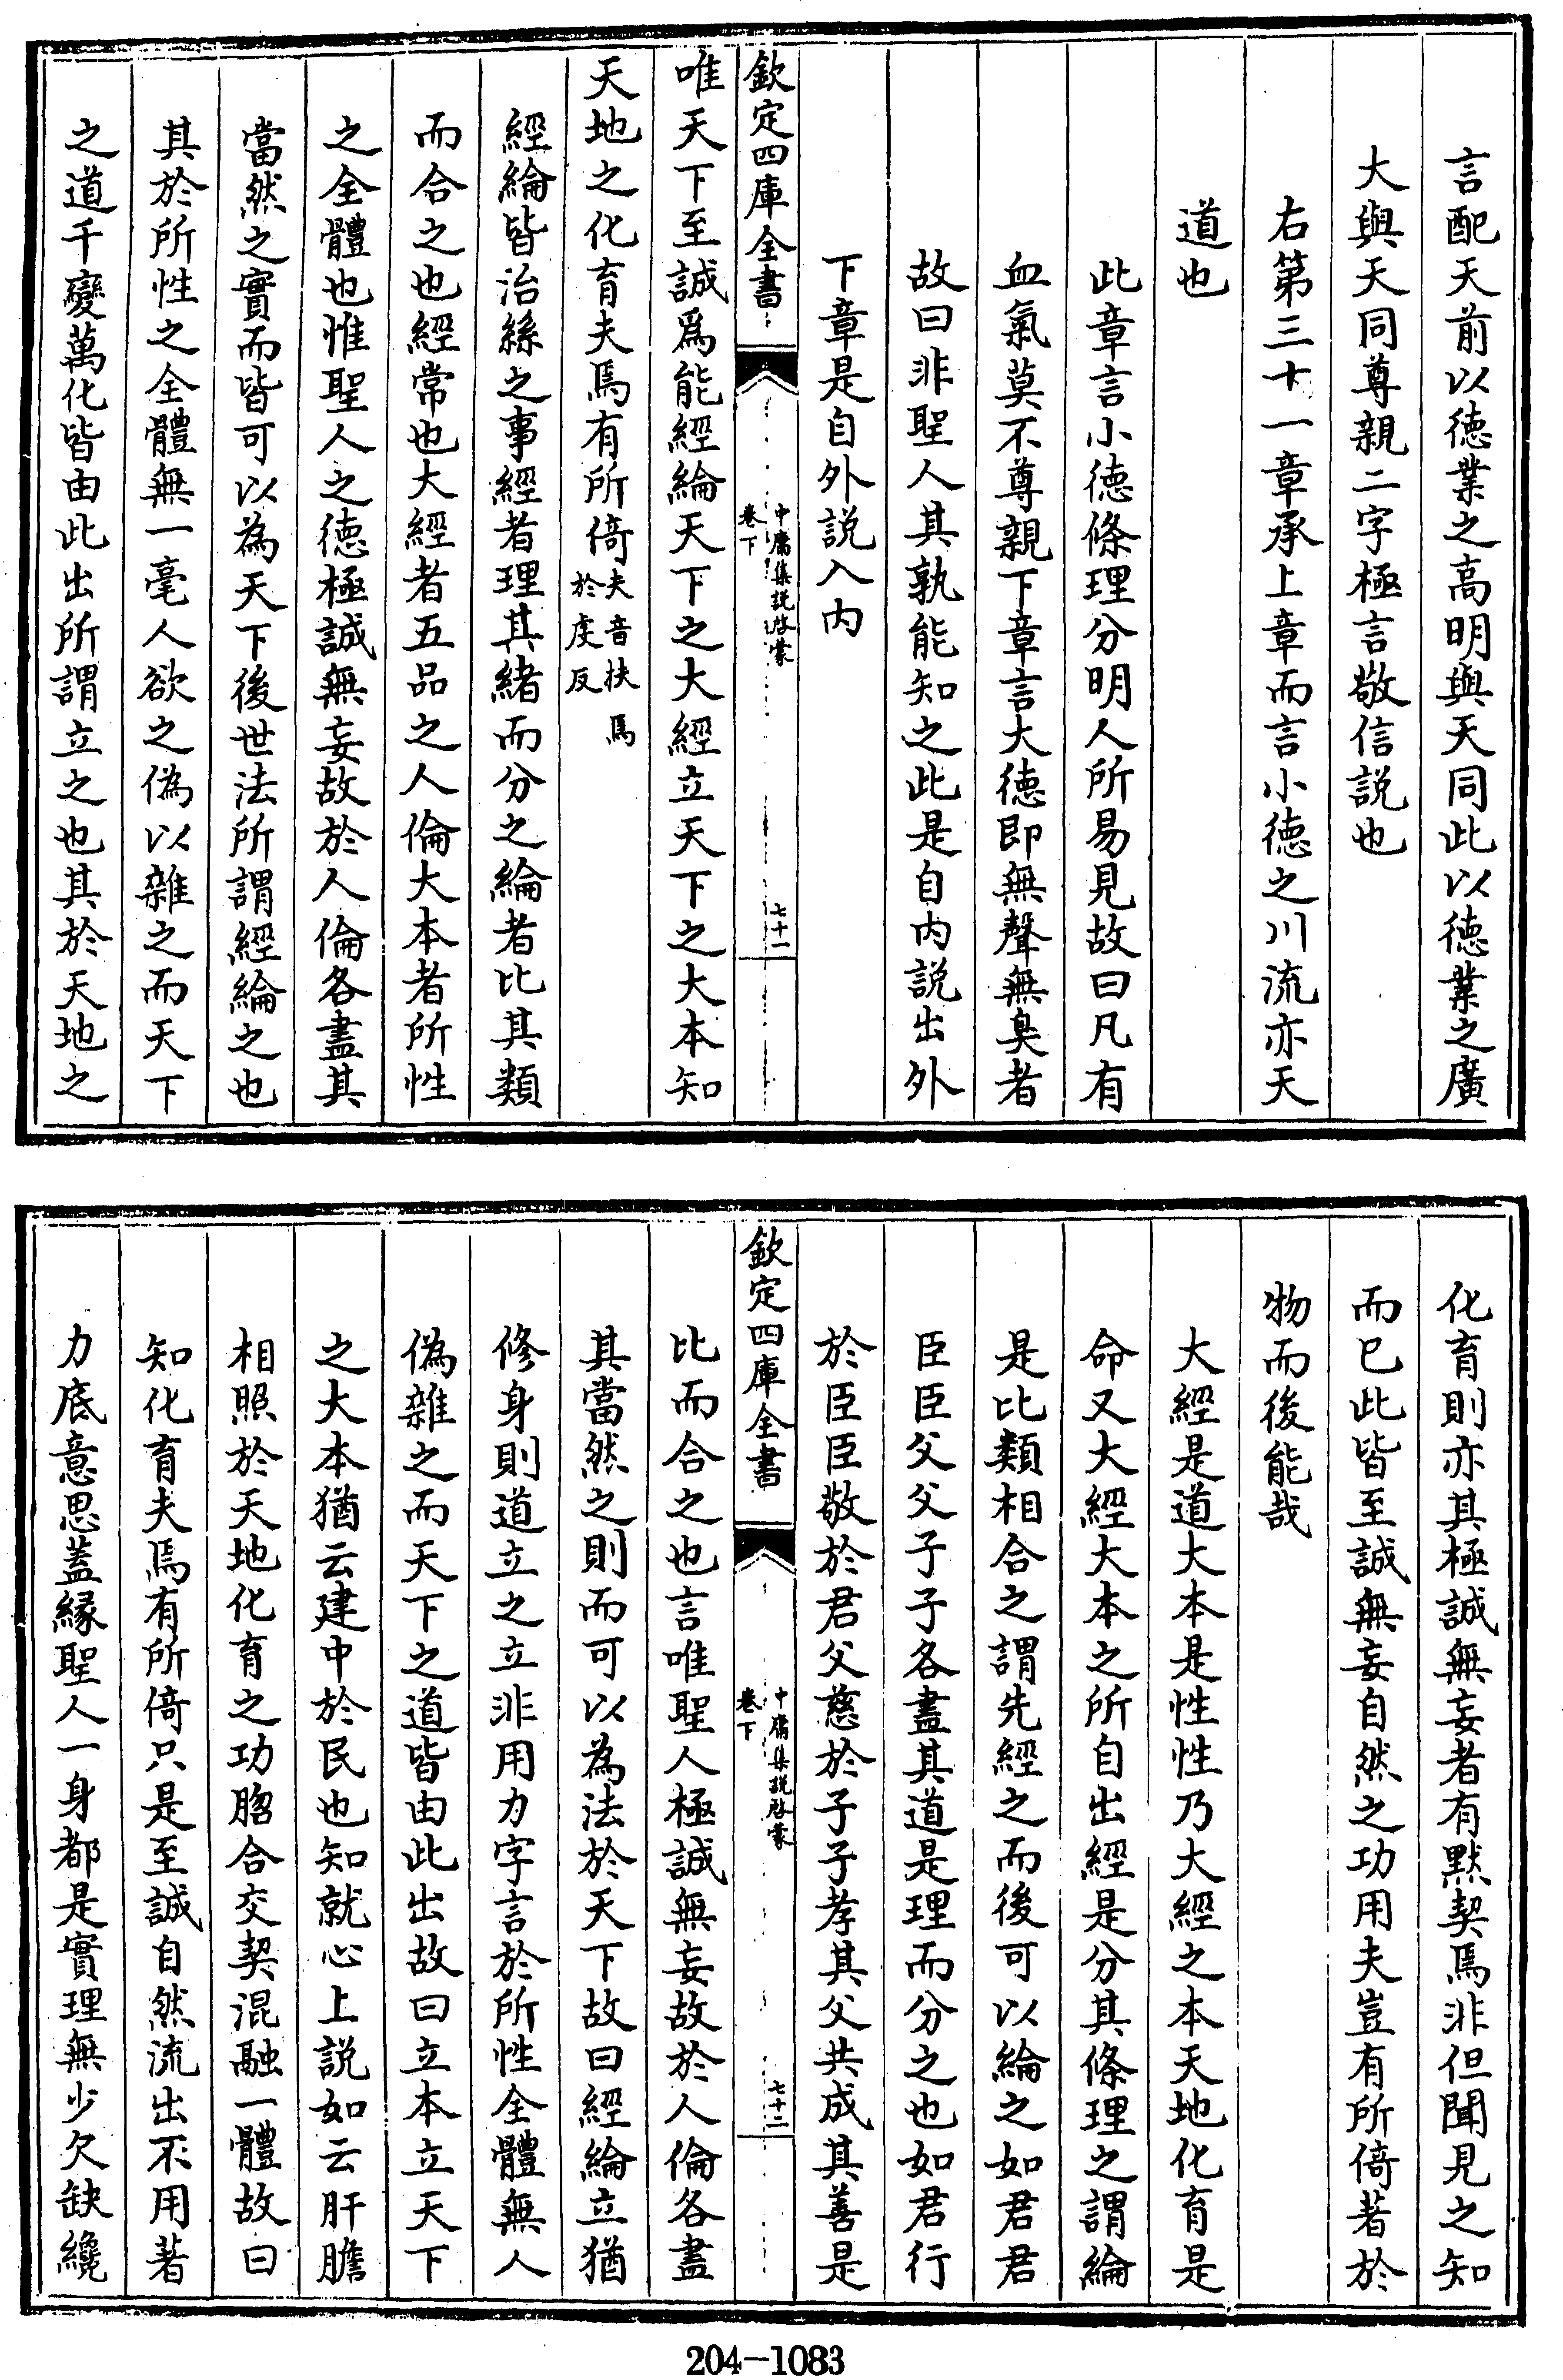 言配天前以徳業之髙明與天同此以徳業之廣
大與天同尊親二字極言敬信説也
右第三十一章承上章而言小徳之川流亦天
道也
此章言小徳條理分明人所易見故曰凡有
血氣莫不尊親下章言大徳即無聲無臭者
故曰非聖人其孰能知之此是自内説出外
下章是自外説入内
欽定四庫全書
中庸集説啓蒙
卷下
七十一
唯天下至誠爲能經綸天下之大經立天下之大本知
天地之化育夫焉有所倚夫音扶焉
於虔反
經綸皆治絲之事經者理其緒而分之綸者比其類
而合之也經常也大經者五品之人倫大本者所性
之全體也惟聖人之徳極誠無妄故於人倫各盡其
當然之實而皆可以為天下後世法所謂經綸之也
其於所性之全體無一毫人欲之偽以雜之而天下
之道千變萬化皆由此出所謂立之也其於天地之
化育則亦其極誠無妄者有默契焉非但聞見之知
而已此皆至誠無妄自然之功用夫豈有所倚著於
物而後能哉
大經是道大本是性性乃大經之本天地化育是
命又大經大本之所自出經是分其條理之謂綸
是比類相合之謂先經之而後可以綸之如君君
臣臣父父子子各盡其道是理而分之也如君行
於臣臣敬於君父慈於子子孝其父共成其善是
欽定四庫全書
中庸集説啓蒙
卷下
七十二
比而合之也言唯聖人極誠無妄故於人倫各盡
其當然之則而可以為法於天下故曰經綸立猶
修身則道立之立非用力字言於所性全體無人
偽雜之而天下之道皆由此出故曰立本立天下
之大本猶云建中於民也知就心上説如云肝膽
相照於天地化育之功脗合交契混融一體故曰
知化育夫焉有所倚只是至誠自然流出不用著
力底意思蓋緣聖人一身都是實理無少欠缺纔
204-1083